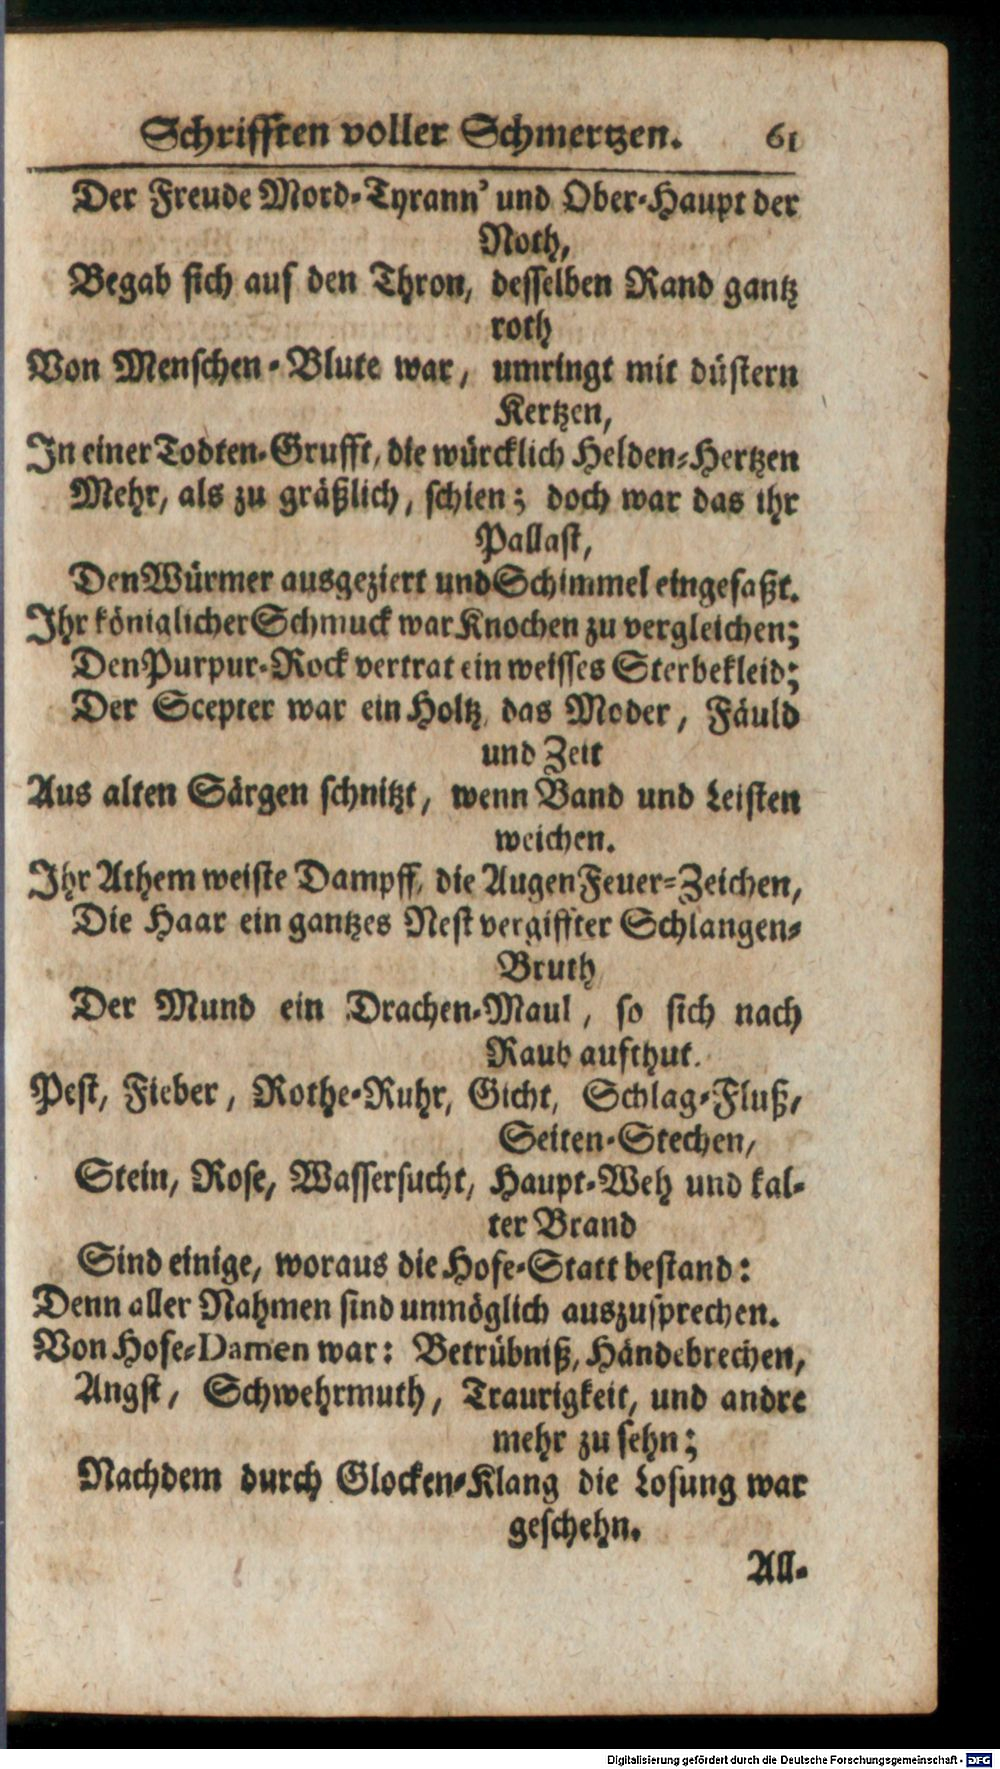 Schrifften voller Schmertzen. 61
Der Freude Mord-Tyrann' und Ober-Haupt der
Noth,
Begab sich auf den Thron, desselben Rand gantz
roth
Von Menschen-Blute war, umringt mit düstern
Kertzen,
In einer Todten-Grufft, die würcklich Helden-Hertzen
Mehr, als zu gräßlich, schien; doch war das ihr
Pallast,
Den Würmer ausgeziert und Schimmel eingefaßt.
Ihr königlicher Schmuck war Knochen zu vergleichen;
Den Purpur-Rock vertrat ein weisses Sterbekleid;
Der Scepter war ein Holtz, das Moder, Fäuld
und Zeit
Aus alten Särgen schnitzt, wenn Band und Leisten
weichen.
Ihr Athem weiste Dampff, die Augen Feuer-Zeichen,
Die Haar ein gantzes Nest vergiffter Schlangen-
Bruth
Der Mund ein Drachen-Maul, so sich nach
Raub aufthut.
Pest, Fieber, Rothe-Ruhr, Gicht, Schlag-Fluß,
Seiten-Stechen,
Stein, Rose, Wassersucht, Haupt-Weh und kal-
ter Brand
Sind einige, woraus die Hofe-Statt bestand:
Denn aller Nahmen sind unmöglich auszusprechen.
Von Hofe-Damen war: Betrübniß, Händebrechen,
Angst, Schwehrmuth, Traurigkeit, und andre
mehr zu sehn;
Nachdem durch Glocken-Klang die Losung war
geschehn.
All-
Digitalisierung gefördert durch die Deutsche Forschungsgemeinschaft - DFG